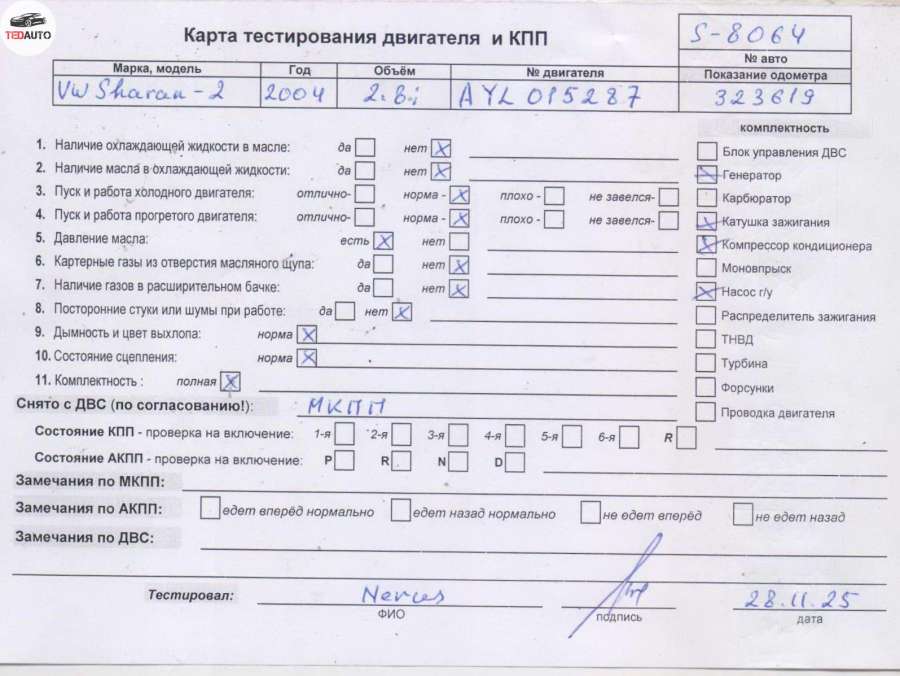 TEDAUTO
Карта тестирования двигателя и КПП
S-8064
№ авто
Марка, модель Год Объём № двигателя Показание одометра
VW Sharan-2 2004 2.8i AYL 015287 323619
комплектность
1. Наличие охлаждающей жидкости в масле: да нет X
Блок управления ДВС
2. Наличие масла в охлаждающей жидкости: да нет X
X Генератор
3. Пуск и работа холодного двигателя: отлично- норма - X плохо - не завелся-
Карбюратор
4. Пуск и работа прогретого двигателя: отлично- норма - X плохо - не завелся-
X Катушка зажигания
5. Давление масла: есть X нет
X Компрессор кондиционера
6. Картерные газы из отверстия масляного щупа: да нет X
Моновпрыск
7. Наличие газов в расширительном бачке: да нет X
X Насос г/у
8. Посторонние стуки или шумы при работе: да нет X
Распределитель зажигания
9. Дымность и цвет выхлопа: норма X
ТНВД
10. Состояние сцепления: норма X
Турбина
11. Комплектность : полная X
Форсунки
Снято с ДВС (по согласованию!): МКПП
Проводка двигателя
Состояние КПП - проверка на включение: 1-я 2-я 3-я 4-я 5-я 6-я R
Состояние АКПП - проверка на включение: P R N D
Замечания по МКПП:
Замечания по АКПП: едет вперёд нормально едет назад нормально не едет вперёд не едет назад
Замечания по ДВС:
Тестировал: 28.11.25
ФИО подпись дата